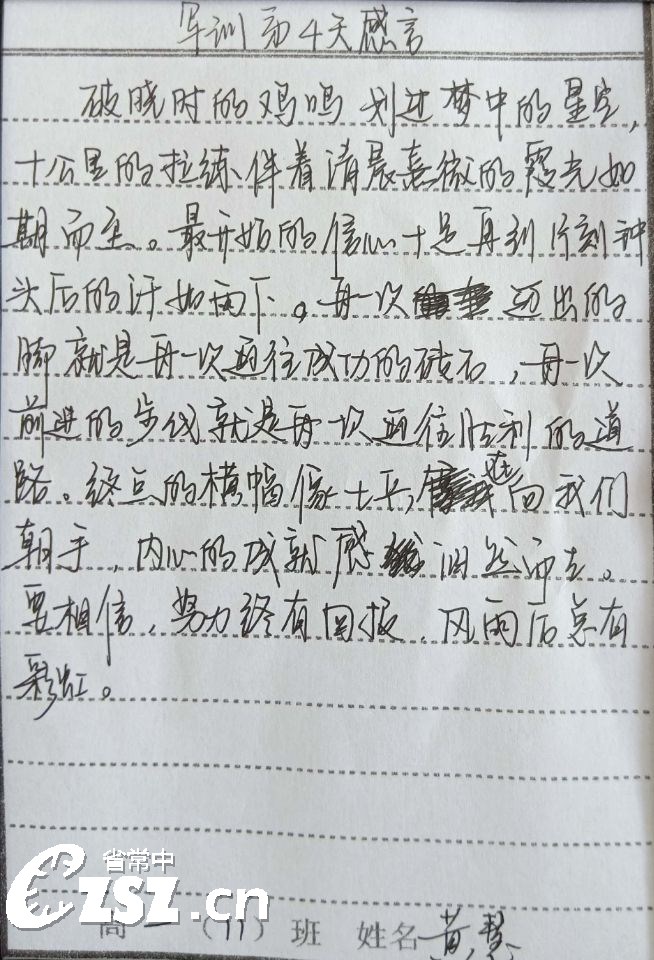 军训第4天感言
破晓时的鸡鸣划过梦中的星空,
十公里的拉练伴着清晨熹微的霞光如
期而至。最开始的信心十足再到片刻钟
头后的汗如雨下。每一次迈出的
脚就是再一次通往成功的砖石,每一次
前进的步伐就是再一次通往胜利的道
路。终点的横幅像士兵在向我们
招手,内心的成就感油然而生。
要相信,努力终有回报,风雨后总有
彩虹。
省常中
czsz.cn
高一(11)班 姓名 黄